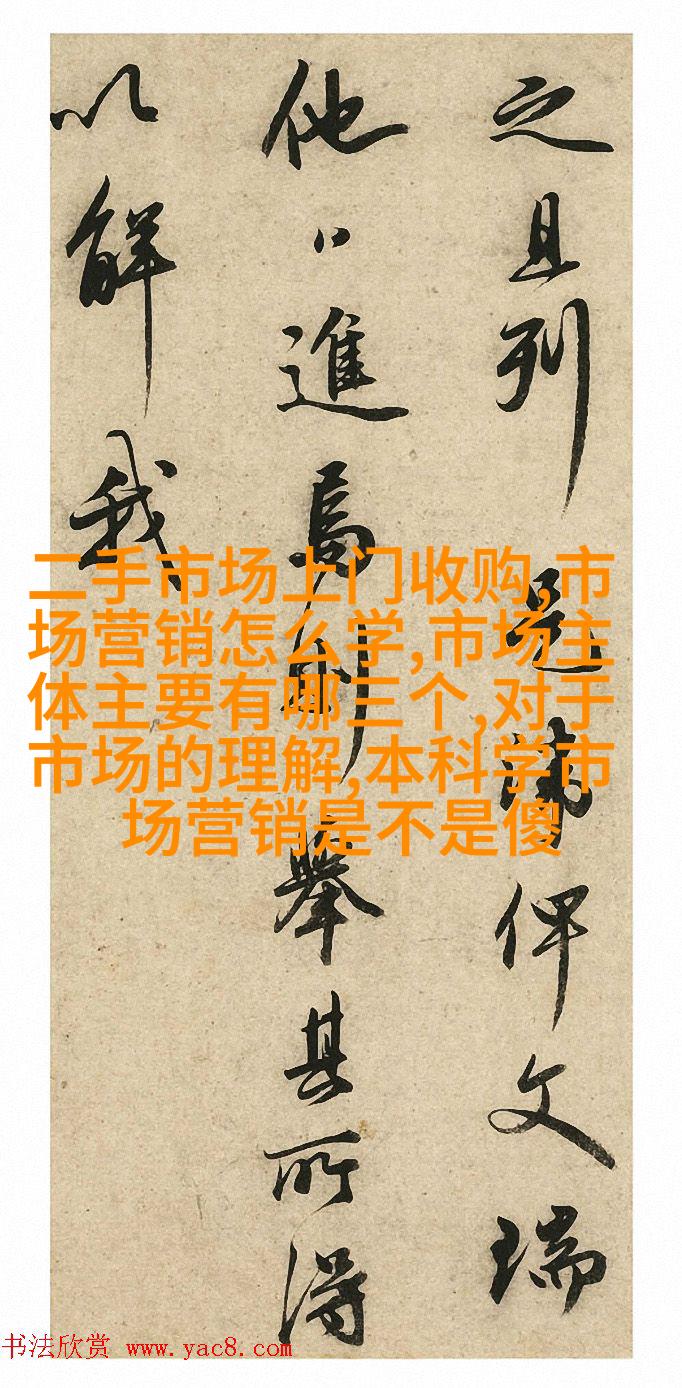 之且列是沛俾文瑞
他〻進焉則舉其所得
以解我
二手市场上门收购,市
场营销怎么学,市场主
体主要有哪三个,对于
市场的理解,本科学市
场营销是不是傻
书法欣赏 www.yac8.com